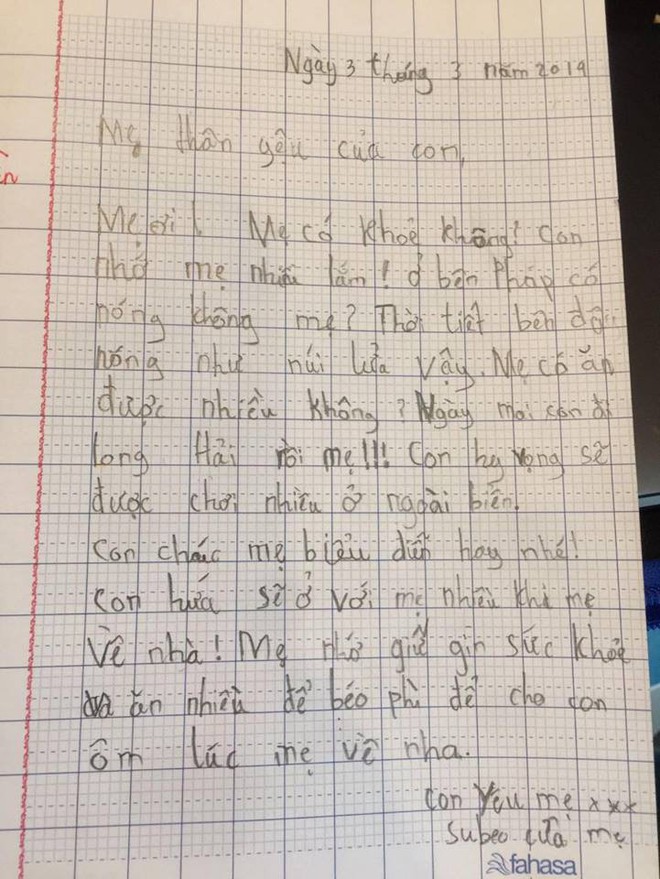 Ngày 3 tháng 3 năm 2019
Mẹ thân yêu của con,
Mẹ ơi! Mẹ có khoẻ không? Con
nhớ mẹ nhiều lắm! ở bên Pháp có
nóng không mẹ? Thời tiết bên đây
nóng như núi lửa vậy. Mẹ có ăn
được nhiều không? Ngày mai con đi
long Hải rồi mẹ!!! Con hy vọng sẽ
được chơi nhiều ở ngoài biển.
Con chúc mẹ biểu diễn hay nhé!
Con hứa sẽ ở với mẹ nhiều khi mẹ
Về nhà! Mẹ nhớ giữ gìn sức khoẻ
và ăn nhiều để béo phì để cho con
ôm lúc mẹ về nha.
Con Yêu mẹ xxx
Subeo của mẹ
fahasa